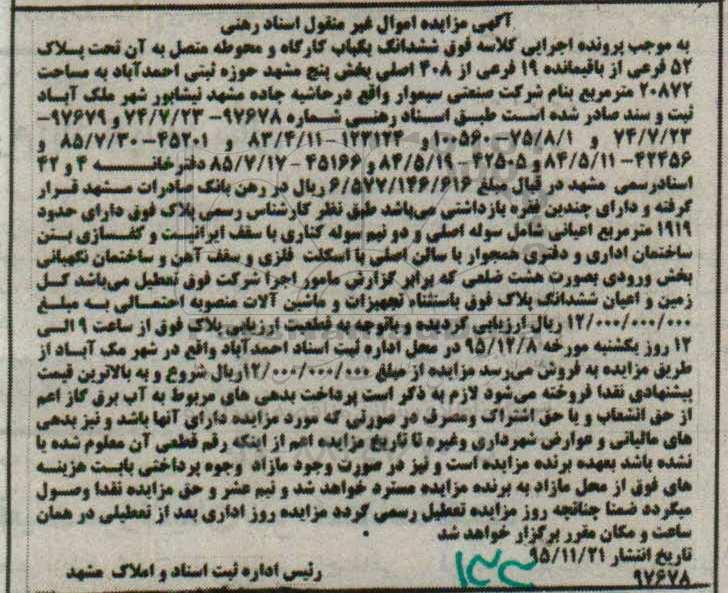 آگهی مزایده اموال غیر منقول اسناد رهنی
به موجب پرونده اجرایی کلاسه فوق ششدانگ یکباب کارگاه و محوطه متصل به آن تحت پلاک
۵۲ فرعی از باقیمانده ۱۹ فرعی از ۴۰۸ اصلی بخش پنج مشهد حوزه ثبتی احمدآباد به مساحت
۲۰۸۷۲ مترمربع بنام شرکت صنعتی سیموار واقع درحاشیه جاده مشهد نیشابور شهر ملک آباد
ثبت و سند صادر شده است طبق اسناد رهنی شماره ۹۷۶۷۸- ۷۴/۷/۲۳ و ۹۷۶۷۹-
۷۴/۷/۲۳ و ۷۵/۸/۱-۱۰۰۵۶۰ و ۱۲۲۱۲۴-۸۳/۴/۱۱ و ۴۵۲۰۱-۸۵/۷/۳۰ و
۴۲۴۵۶-۸۴/۵/۱۱ و ۴۲۵۰۵-۸۴/۵/۱۹ و ۴۵۱۶۶-۸۵/۷/۱۷ دفترخانه ۴ و ۴۲
اسنادرسمی مشهد در قبال مبلغ ۶/۵۷۷/۱۴۶/۶۱۶ ریال در رهن بانک صادرات مشهد قرار
گرفته و دارای چندین فقره بازداشتی می‌باشد طبق نظر کارشناس رسمی پلاک فوق دارای حدود
۱۹۱۹ مترمربع اعیانی شامل سوله اصلی و دو نیم سوله کناری با سقف ایرانیت و کفسازی بتن
ساختمان اداری و دفتری همجوار با سالن اصلی با اسکلت فلزی و سقف آهن و ساختمان نگهبانی
بخش ورودی بصورت هشت ضلعی که برابر گزارش مامور اجرا شرکت فوق تعطیل می‌باشد کل
زمین و اعیان ششدانگ پلاک فوق باستثناء تجهیزات و ماشین آلات منصوبه احتمالی به مبلغ
۱۲/۰۰۰/۰۰۰/۰۰۰ ریال ارزیابی گردیده و باتوجه به قطعیت ارزیابی پلاک فوق از ساعت ۹ الی
۱۲ روز یکشنبه مورخه ۹۵/۱۲/۸ در محل اداره ثبت اسناد احمدآباد واقع در شهر مک آباد از
طریق مزایده به فروش می‌رسد مزایده از مبلغ ۱۲/۰۰۰/۰۰۰/۰۰۰ریال شروع و به بالاترین قیمت
پیشنهادی نقدا فروخته می‌شود لازم به ذکر است پرداخت بدهی های مربوط به آب برق گاز اعم
از حق انشعاب و یا حق اشتراک ومصرف در صورتی که مورد مزایده دارای آنها باشد و نیز بدهی
های مالیاتی و عوارض شهرداری وغیره تا تاریخ مزایده اعم از اینکه رقم قطعی آن معلوم شده یا
نشده باشد بعهده برنده مزایده است و نیز در صورت وجود مازاد وجوه پرداختی بابت هزینه
های فوق از محل مازاد به برنده مزایده مسترد خواهد شد و نیم عشر و حق مزایده نقدا وصول
میگردد ضمنا چنانچه روز مزایده تعطیل رسمی گردد مزایده روز اداری بعد از تعطیلی در همان
ساعت و مکان مقرر برگزار خواهد شد
تاریخ انتشار ۹۵/۱۱/۲۱
رئیس اداره ثبت اسناد و املاک مشهد
۹۷۶۷۸